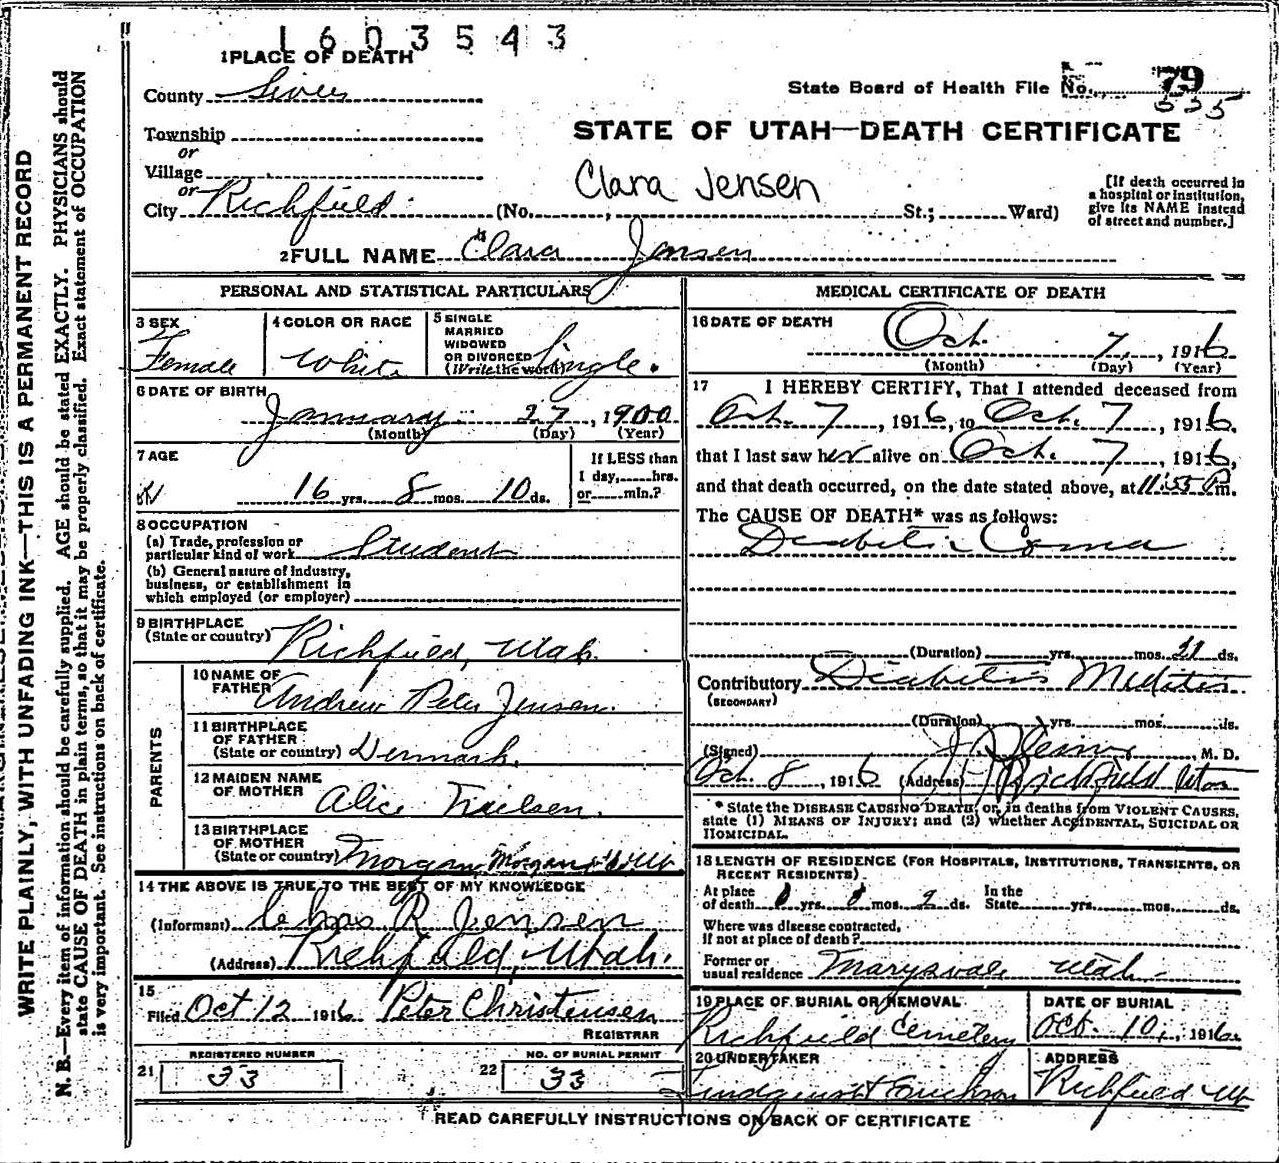 1603543
1 PLACE OF DEATH
County Sevier
State Board of Health File No. 79
535
Township
or
Village
or
City Richfield (No. , St.; Ward)
STATE OF UTAH—DEATH CERTIFICATE
Clara Jensen
[If death occurred in
a hospital or institution,
give its NAME instead
of street and number.]
2 FULL NAME Clara Jensen
PERSONAL AND STATISTICAL PARTICULARS
3 SEX
Female
4 COLOR OR RACE
White
5 SINGLE
MARRIED
WIDOWED
OR DIVORCED
(Write the word) Single.
6 DATE OF BIRTH
January 27, 1900
(Month) (Day) (Year)
7 AGE
16 yrs. 8 mos. 10 ds.
If LESS than
1 day, hrs.
or min.?
8 OCCUPATION
(a) Trade, profession or
particular kind of work Student
(b) General nature of industry,
business, or establishment in
which employed (or employer)
9 BIRTHPLACE
(State or country) Richfield, Utah.
PARENTS
10 NAME OF
FATHER Andrew Peter Jensen.
11 BIRTHPLACE
OF FATHER
(State or country) Denmark.
12 MAIDEN NAME
OF MOTHER Alice Neilsen.
13 BIRTHPLACE
OF MOTHER
(State or country) Morgan, Morgan
14 THE ABOVE IS TRUE TO THE BEST OF MY KNOWLEDGE
(Informant) Chas R Jensen
(Address) Richfield, Utah.
15
Filed Oct 12 1916 Peter Christensen
REGISTRAR
21 REGISTERED NUMBER
33
22 NO. OF BURIAL PERMIT
33
MEDICAL CERTIFICATE OF DEATH
16 DATE OF DEATH
Oct. 7, , 1916
(Month) (Day) (Year)
17 I HEREBY CERTIFY, That I attended deceased from
Oct. 7 , 1916, to Oct. 7 , 1916.
that I last saw her alive on Oct. 7 , 1916,
and that death occurred, on the date stated above, at 11:55 P.m.
The CAUSE OF DEATH* was as follows:
Diabetic Coma
(Duration) yrs. mos. 21 ds.
Contributory Diabetis Mellitis
(SECONDARY)
(Duration) yrs. mos. ds.
(Signed) M. D.
Oct. 8 , 1916 (Address) Richfield Utah
* State the DISEASE CAUSING DEATH, or, in deaths from VIOLENT CAUSES,
state (1) MEANS OF INJURY; and (2) whether ACCIDENTAL, SUICIDAL OR
HOMICIDAL.
18 LENGTH OF RESIDENCE (FOR HOSPITALS, INSTITUTIONS, TRANSIENTS, OR
RECENT RESIDENTS).
At place
of death 0 yrs. 0 mos. 2 ds.
In the
State yrs. mos. ds.
Where was disease contracted,
if not at place of death?
Former or
usual residence Marysvale Utah
19 PLACE OF BURIAL OR REMOVAL
Richfield Cemetery
DATE OF BURIAL
Oct. 10, , 1916.
20 UNDERTAKER
ADDRESS
Richfield Ut
READ CAREFULLY INSTRUCTIONS ON BACK OF CERTIFICATE
WRITE PLAINLY, WITH UNFADING INK—THIS IS A PERMANENT RECORD
N. B.—Every item of information should be carefully supplied. AGE should be stated EXACTLY. PHYSICIANS should
state CAUSE OF DEATH in plain terms, so that it may be properly classified. Exact statement of OCCUPATION
is very important. See instructions on back of certificate.